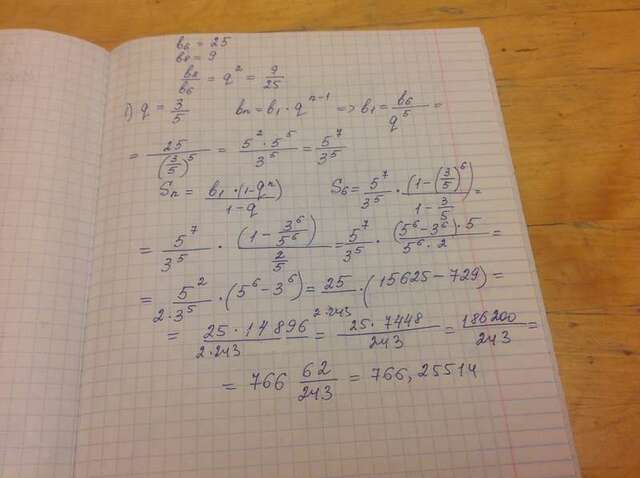 b₆ = 25
b₈ = 9
b₈/b₆ = q² = 9/25
1) q = 3/5 bₙ = b₁ · qⁿ⁻¹ => b₁ = b₆/q⁵ =
= 25/(3/5)⁵ = 5² · 5⁵/3⁵ = 5⁷/3⁵
Sₙ = b₁ · (1-qⁿ)/1-q S₆ = 5⁷/3⁵ · (1-(3/5)⁶)/1-3/5 =
= 5⁷/3⁵ · (1 - 3⁶/5⁶)/(2/5) = 5⁷/3⁵ · (5⁶-3⁶) · 5/5⁶ · 2 =
= 5²/2·3⁵ · (5⁶-3⁶) = 25/2·243 · (15625-729) =
= 25 · 14896/2·243 = 25 · 7448/243 = 186200/243 =
= 766 62/243 = 766,25514